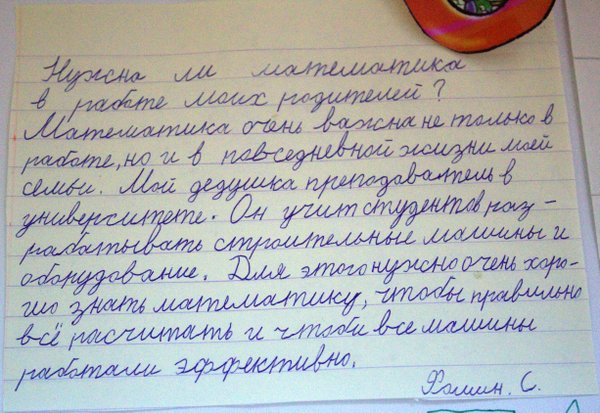 Нужна ли математика
в работе моих родителей?
Математика очень важна не только в
работе, но и в повседневной жизни моей
семьи. Мой дедушка преподаватель в
университете. Он учит студентов раз-
рабатывать строительные машины и
оборудование. Для этого нужно очень хоро-
шо знать математику, чтобы правильно
всё расчитать и чтоби все машины
работали эффективно.
Хомин. С.